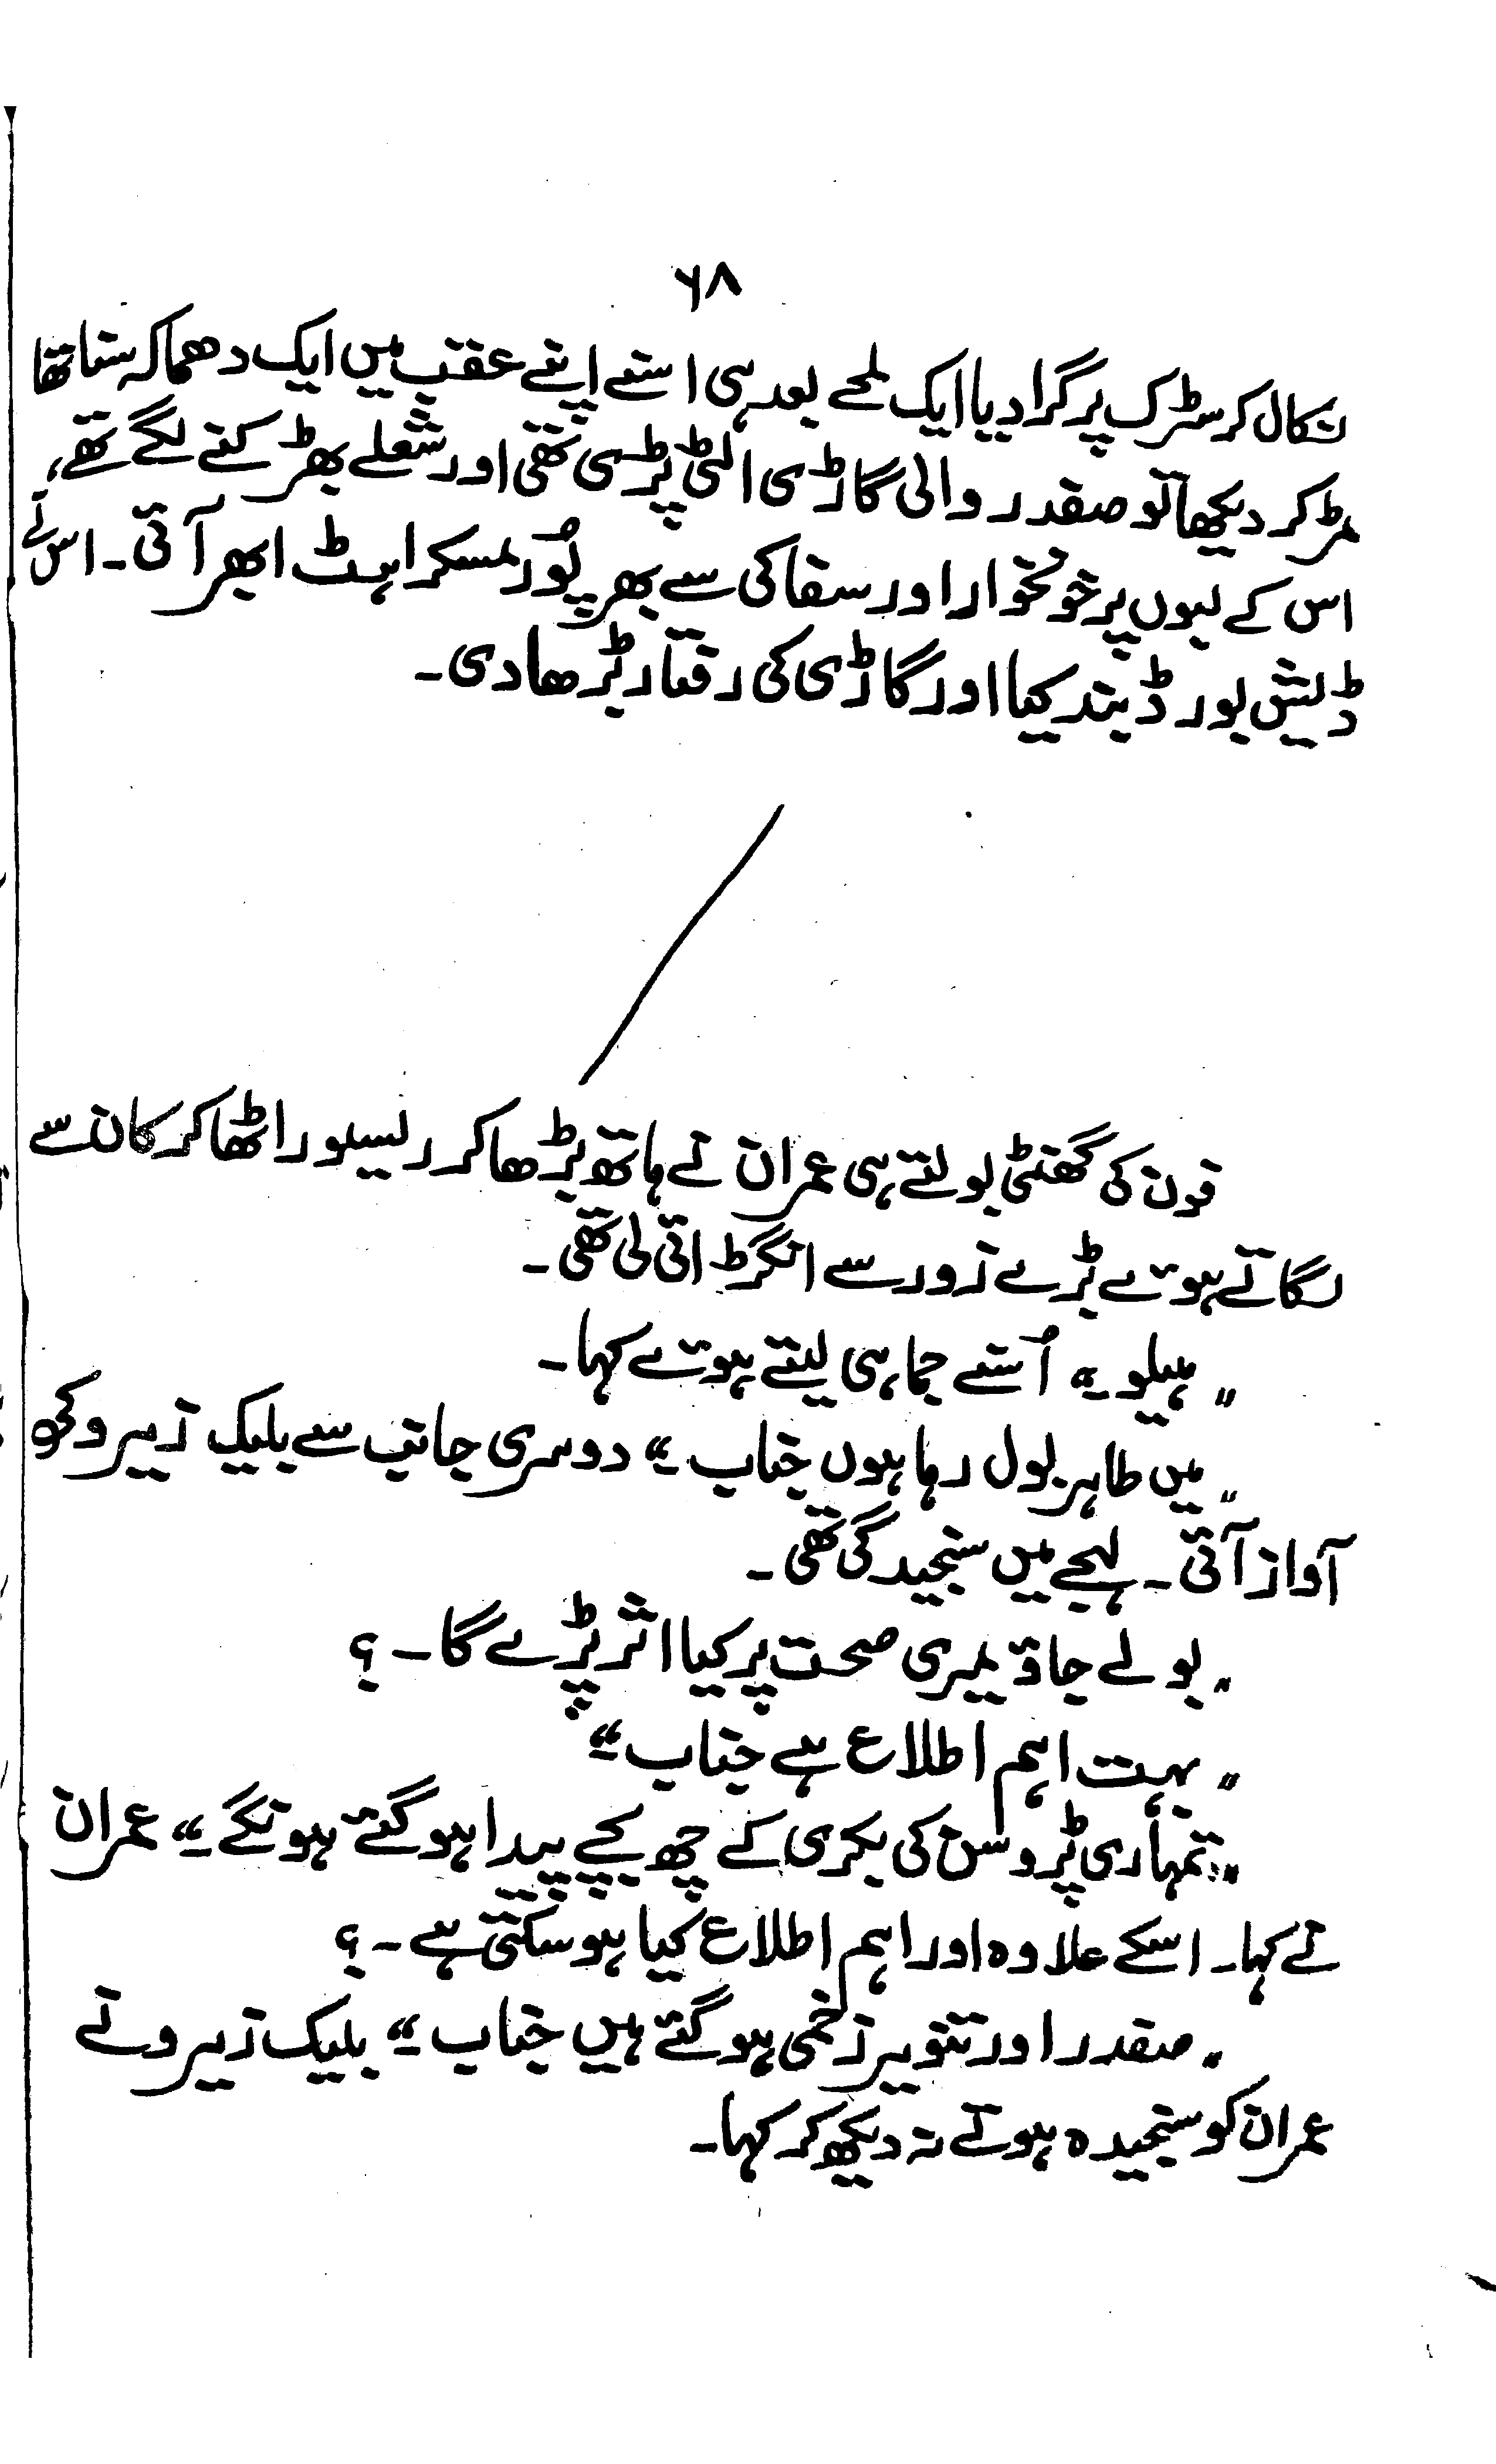 ۶۸
نکال کر سڑک پر گرا دیا ایک لمحے بعد ہی اسنے اپنے عقب میں ایک دھماکہ سنا تھا
مڑ کر دیکھا تو صفدر والی گاڑی الٹی پڑی تھی اور شعلے بھڑ کنے لگے تھے،
اس کے لبوں پر خونخوار اور سفاکی سے بھر پُور مسکراہٹ ابھر آئی۔ اس نے
ڈیش بورڈ بند کیا اور گاڑی کی رفتار بڑھا دی۔
فون کی گھنٹی بولتے ہی عمران نے ہاتھ بڑھا کر ریسیور اٹھا کر کان سے
لگاتے ہوئے بڑے زور سے انگڑائی لی تھی۔
"ہیلو۔" اُسنے جماہی لیتے ہوئے کہا۔
"میں طاہر بول رہا ہوں جناب۔" دوسری جانب سے بلیک زیرو کی
آواز آئی۔ لہجے میں سنجیدگی تھی۔
"بولے جاؤ میری صحت پر کیا اثر پڑے گا۔؟
"بہت اہم اطلاع ہے جناب۔"
"تمہاری پڑوسن کی بکری کے چھ بچے پیدا ہو گئے ہونگے۔" عمران
نے کہا۔ اسکے علاوہ اور اہم اطلاع کیا ہو سکتی ہے۔؟
"صفدر اور تنویر زخمی ہو گئے ہیں جناب۔" بلیک زیرو نے
عمران کو سنجیدہ ہوتے نہ دیکھ کر کہا۔